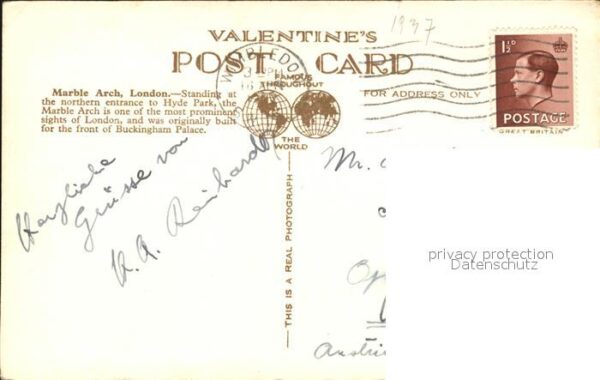 1937
VALENTINE'S
POST CARD
WIMBLEDON
FAMOUS
THROUGHOUT
THE
WORLD
FOR ADDRESS ONLY
1½D
POSTAGE
GREAT BRITAIN
Marble Arch, London.—Standing at
the northern entrance to Hyde Park, the
Marble Arch is one of the most prominent
sights of London, and was originally built
for the front of Buckingham Palace.
Herzliche
Grüsse von
Reinhardt
THIS IS A REAL PHOTOGRAPH
Mr.
privacy protection
Datenschutz